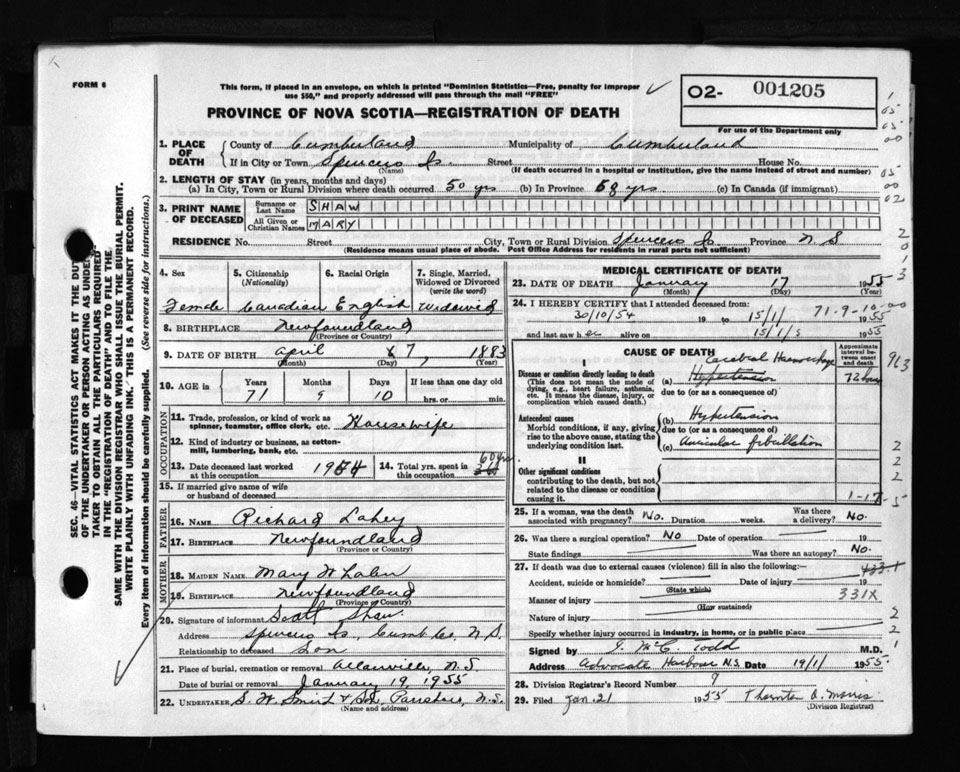 FORM 6
This form, if placed in an envelope, on which is printed "Dominion Statistics—Free, penalty for improper
use $50," and properly addressed will pass through the mail "FREE"
02- 001205
PROVINCE OF NOVA SCOTIA—REGISTRATION OF DEATH
For use of the Department only
1. PLACE OF DEATH
County of Cumberland Municipality of Cumberland
If in City or Town Spencers Is. Street House No.
(Name) (If death occurred in a hospital or institution, give the name instead of street and number)
2. LENGTH OF STAY (in years, months and days)
(a) In City, Town or Rural Division where death occurred 50 yrs (b) In Province 58 yrs. (c) In Canada (if immigrant)
3. PRINT NAME OF DECEASED
Surname or Last Name SHAW
All Given or Christian Names MARY
RESIDENCE No. Street City, Town or Rural Division Spencers Is Province N S
(Residence means usual place of abode. Post Office Address for residents in rural parts not sufficient)
4. Sex 5. Citizenship (Nationality) 6. Racial Origin 7. Single, Married, Widowed or Divorced (write the word)
Female Canadian English Widowed
8. BIRTHPLACE Newfoundland
(Province or Country)
9. DATE OF BIRTH April 7, 1883
(Month) (Day) (Year)
10. AGE in Years Months Days If less than one day old
71 9 10 hrs. or min.
OCCUPATION
11. Trade, profession, or kind of work as spinner, teamster, office clerk, etc. Housewife
12. Kind of industry or business, as cotton-mill, lumbering, bank, etc.
13. Date deceased last worked at this occupation 1954 14. Total yrs. spent in this occupation 60 yrs
15. If married give name of wife or husband of deceased
FATHER
16. NAME Richard Lahey
17. BIRTHPLACE Newfoundland
(Province or Country)
MOTHER
18. MAIDEN NAME Mary Whalen
19. BIRTHPLACE Newfoundland
(Province or Country)
20. Signature of informant Scott Shaw
Address Spencers Is., Cumb Co. N.S.
Relationship to deceased Son
21. Place of burial, cremation or removal Allanville, N.S
Date of burial or removal January 19, 1955
22. UNDERTAKER S. W. Smith & Son, Parrsboro, N.S.
(Name and address)
MEDICAL CERTIFICATE OF DEATH
23. DATE OF DEATH January 17 1955
(Month) (Day) (Year)
24. I HEREBY CERTIFY that I attended deceased from: 71-9-10
30/10/54 19 to 15/1/ 1955
and last saw her alive on 15/1/5 1955
CAUSE OF DEATH Approximate interval between onset and death
I
Cerebral Haemorrhage
Disease or condition directly leading to death (a) Hypertension 72 hours
(This does not mean the mode of dying, e.g., heart failure, asthenia, etc. It means the disease, injury, or complication which caused death.) due to (or as a consequence of)
Antecedent causes (b) Hypertension
Morbid conditions, if any, giving rise to the above cause, stating the underlying condition last. due to (or as a consequence of)
(c) Auricular fibrillation
II
Other significant conditions contributing to the death, but not related to the disease or condition causing it.
1-17-5
25. If a woman, was the death associated with pregnancy? No. Duration weeks. Was there a delivery? No.
26. Was there a surgical operation? No Date of operation 19
State findings Was there an autopsy? No.
27. If death was due to external causes (violence) fill in also the following:— 433.1
Accident, suicide or homicide? Date of injury 19
(State which)
Manner of injury 331X
(How sustained)
Nature of injury
Specify whether injury occurred in industry, in home, or in public place
Signed by T. McC. Todd M.D.
Address Advocate Harbour N.S. Date 19/1/ 1955
28. Division Registrar's Record Number 9
29. Filed Jan. 21 1955 Thornton A. Morris
(Division Registrar)
SEC. 46—VITAL STATISTICS ACT MAKES IT THE DUTY
OF THE UNDERTAKER OR PERSON ACTING AS UNDER-
TAKER TO OBTAIN ALL THE PARTICULARS REQUIRED
IN THE "REGISTRATION OF DEATH" AND TO FILE THE
SAME WITH THE DIVISION REGISTRAR WHO SHALL ISSUE THE BURIAL PERMIT.
WRITE PLAINLY WITH UNFADING INK. THIS IS A PERMANENT RECORD.
Every item of information should be carefully supplied. (See reverse side for instructions.)